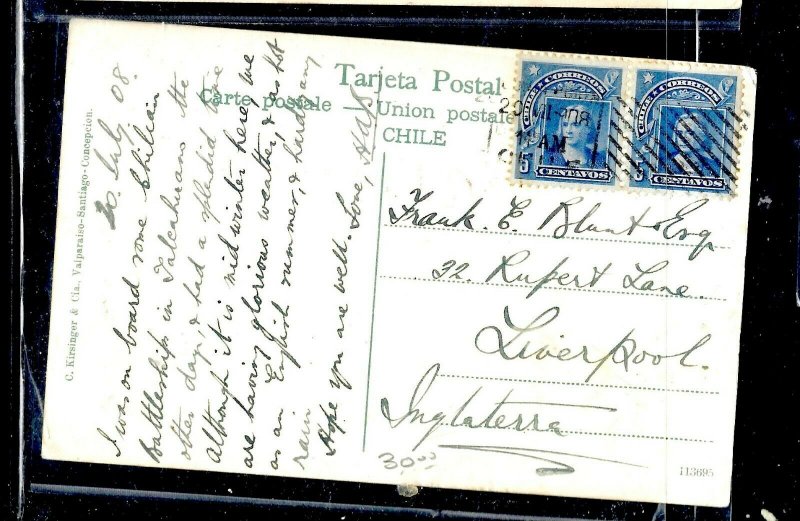 Tarjeta Postal
Carte postale Union postale
CHILE
20. July 08.
I was on board some Chilian
Battleships in Talcahuano the
other day, & had a splendid time
Although it is mid winter here we
are having glorious weather, & as hot
as an English summer, & hardly any
rain
Hope you are well. Love,
C. Kirsinger & Cia., Valparaiso-Santiago-Concepcion.
CHILE CORREOS
5 CENTAVOS
CORREOS
5 CENTAVOS
AM
Frank. E. Blunt Esq
32. Rupert Lane.
Liverpool.
Inglaterra
30.00
113695